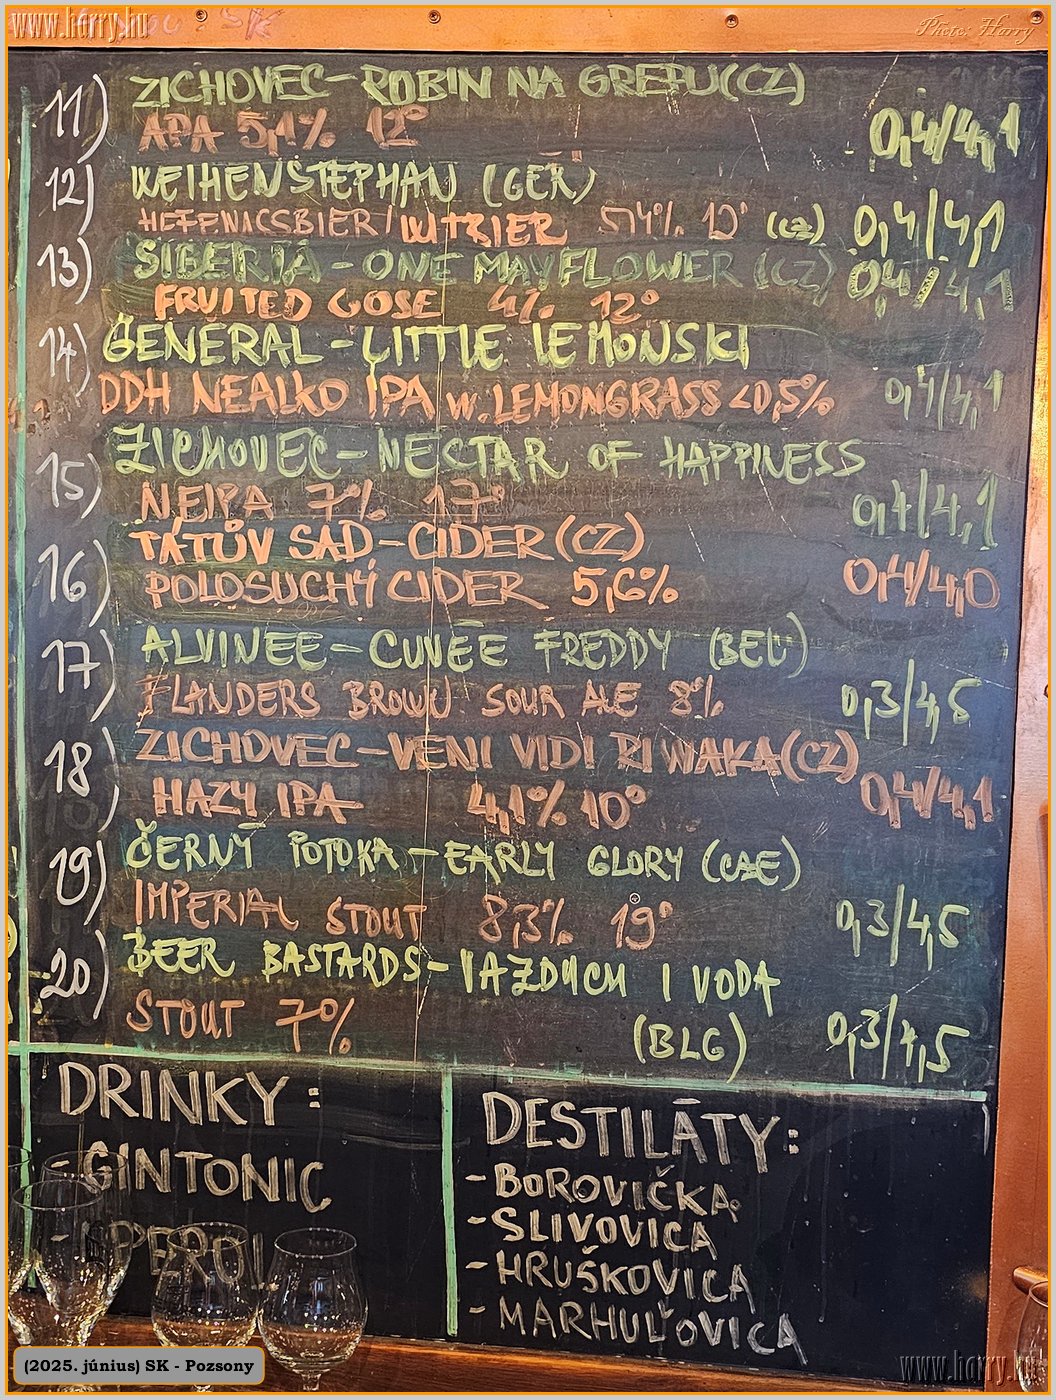 www.harry.hu
Photo: Harry
11) ZICHOVEC - ROBIN NA GREPU (CZ)
APA 5,1% 12° 0,4/4,1
12) WEIHENSTEPHAN (GER)
/WITBIER 5,4% 12° (CZ) 0,4/4,1
13) SIBERIA - ONE MAYFLOWER (CZ) 0,4/4,1
FRUITED GOSE 4% 12°
14) GENERAL - LITTLE LEMONSKI
DDH NEALKO IPA W. LEMONGRASS <0,5% 0,4/4,1
15) ZICHOVEC - NECTAR OF HAPPINESS
NEIPA 7% 17° 0,4/4,1
16) TÁTŮV SAD - CIDER (CZ)
POLOSUCHÝ CIDER 5,6% 0,4/4,0
17) ALVINEE - CUVÉE FREDDY (BEL)
FLANDERS BROWN SOUR ALE 8% 0,3/4,5
18) ZICHOVEC - VENI VIDI RIWAKA (CZ)
HAZY IPA 4,1% 10° 0,4/4,1
19) ČERNÝ POTOKA - EARLY GLORY
IMPERIAL STOUT 8,3% 19° 0,3/4,5
20) BEER BASTARDS - VAZDUCH I VODA
STOUT 7% (BLG) 0,3/4,5
DRINKY:
- GINTONIC
- APEROL
DESTILÁTY:
- BOROVIČKA
- SLIVOVICA
- HRUŠKOVICA
- MARHUĽOVICA
(2025. június) SK - Pozsony
www.harry.hu